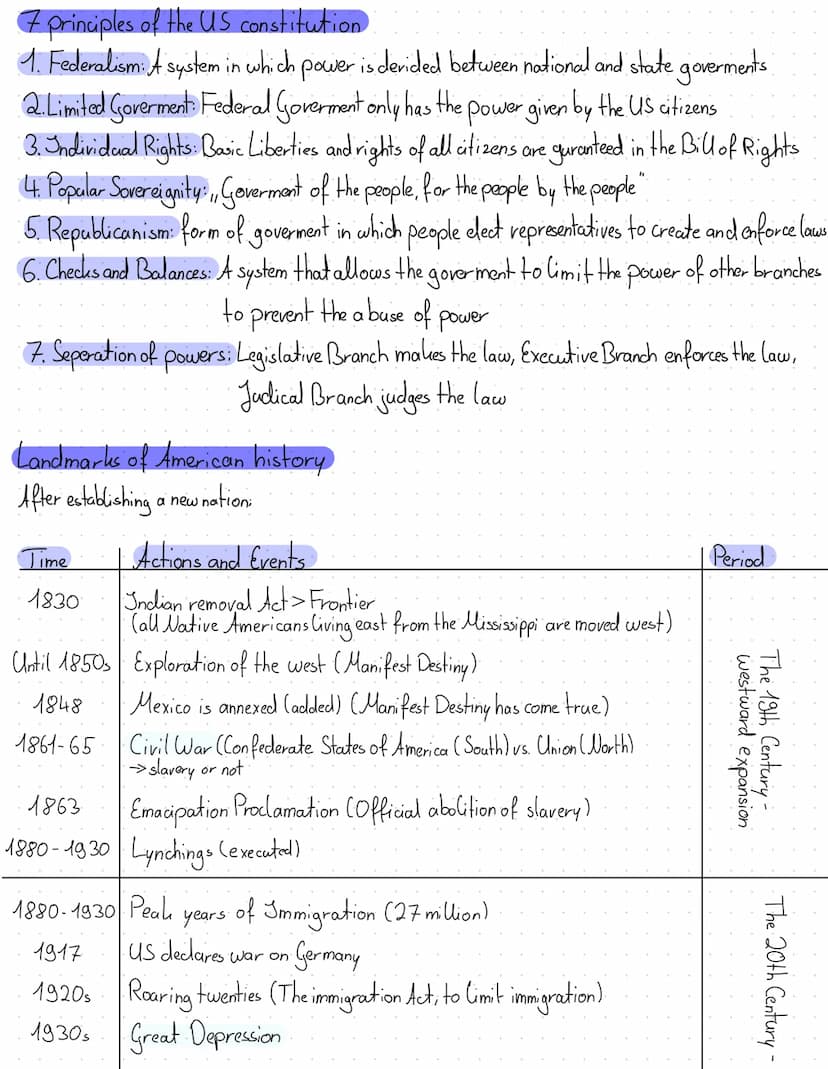 7 principles of the US constitution
1. Federalism: A system in which power is devided between national and state goverments
2. Limited Goverment: Federal Goverment only has the power given by the US citizens
3. Individual Rights: Basic Liberties and rights of all citizens are guranteed in the Bill of Rights
4. Popular Sovereignity: „Goverment of the people, for the people by the people"
5. Republicanism: form of goverment in which people elect representatives to create and enforce laws
6. Checks and Balances: A system that allows the goverment to limit the power of other branches
to prevent the abuse of power
7. Seperation of powers: Legislative Branch makes the law, Executive Branch enforces the law,
Judical Branch judges the law
Landmarks of American history
After establishing a new nation:
Time Actions and Events Period
1830 Indian removal Act > Frontier
(all Native Americans living east from the Mississippi are moved west)
Until 1850s Exploration of the west (Manifest Destiny)
1848 Mexico is annexed (added) (Manifest Destiny has come true)
1861-65 Civil War (Confederate States of America (South) vs. Union (North)
→ slavery or not
1863 Emacipation Proclamation (Official abolition of slavery)
1880-1930 Lynchings (executed)
The 19th Century -
westward expansion
1880-1930 Peak years of Immigration (27 million)
1917 US declares war on Germany
1920s Roaring twenties (The immigration Act, to limit immigration)
1930s Great Depression
The 20th Century -